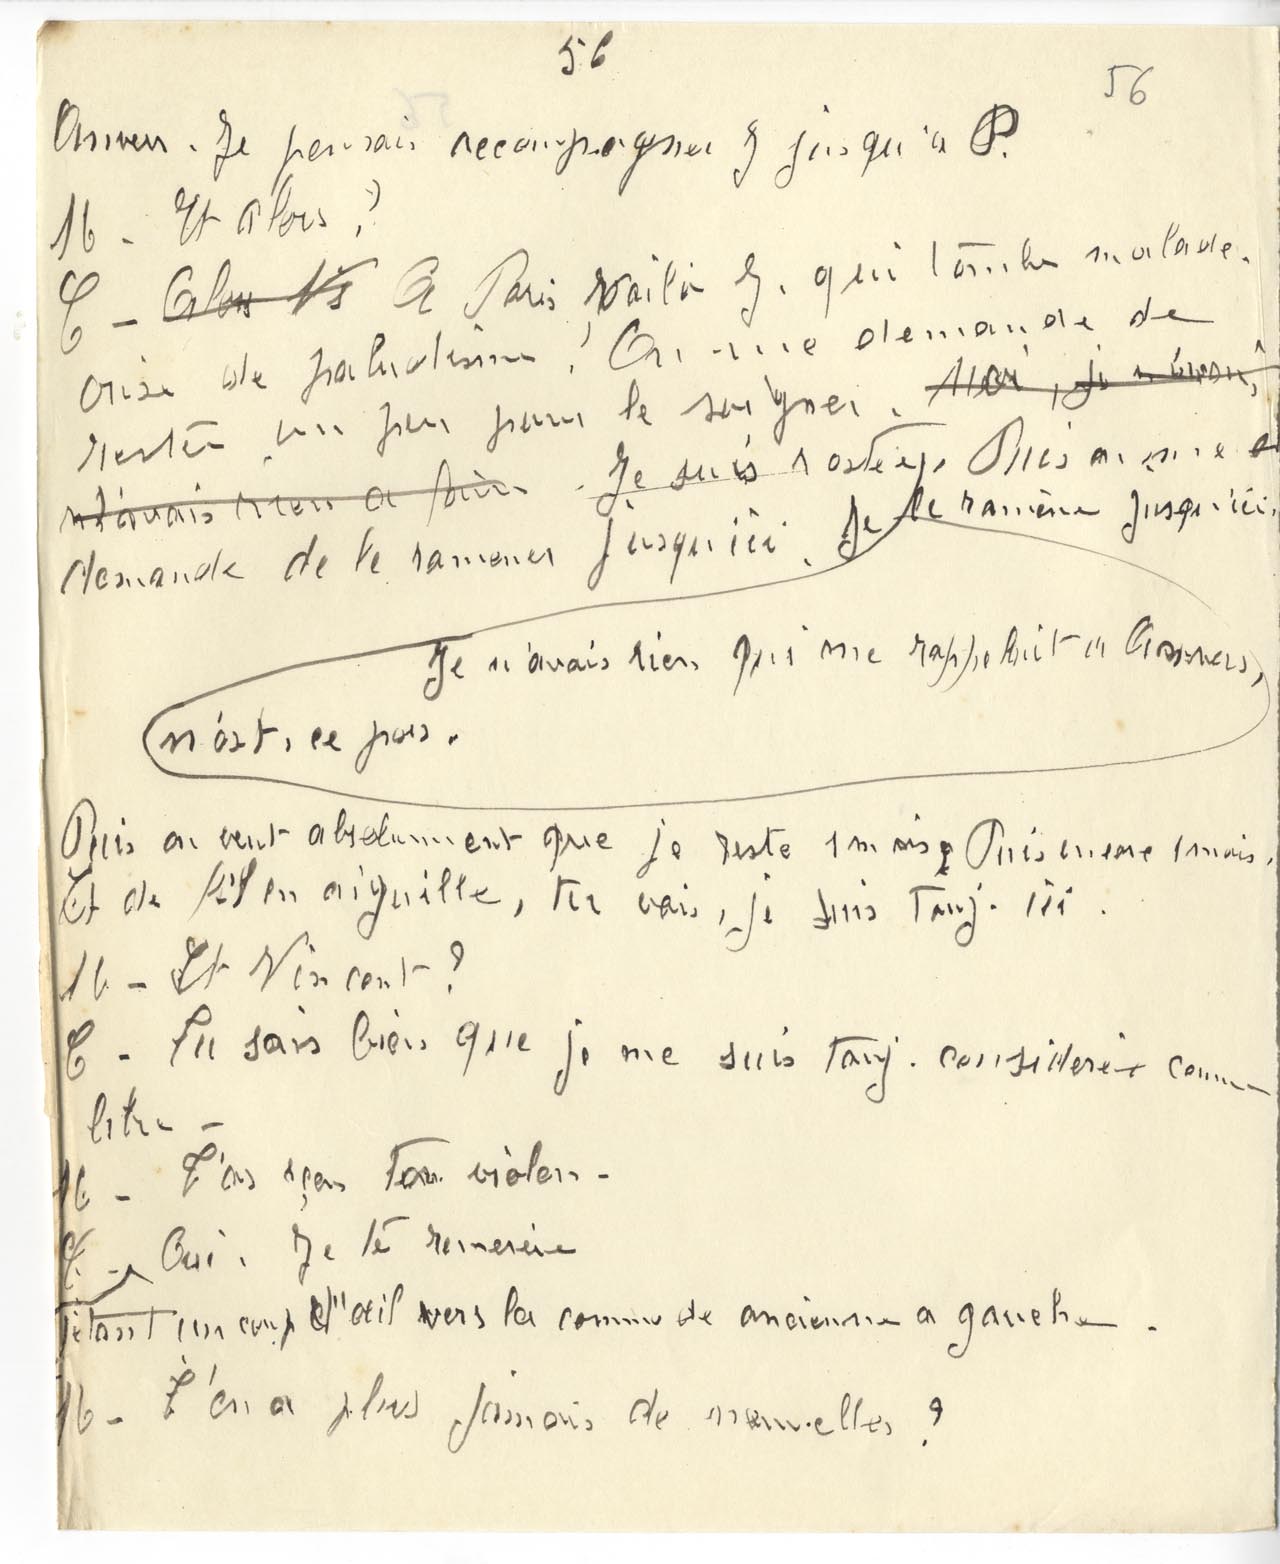 56
56
Anvers. Je pensais accompagner J jusqu'à P.
M - Et alors ?
C - Alors Vs A Paris, voilà J. qui tombe malade.
crise de paludisme ! On me demande de
rester un peu pour le soigner. Moi, je n'avais
rien à faire. Je suis restée. Puis on me
demande de le ramener jusqu'ici. Je le ramène jusqu'ici.
Je n'avais rien qui me rappelait à Anvers,
n'est-ce pas.
Puis on veut absolument que je reste 1 mois, Puis encore 1 mois.
Et de fil en aiguille, tu vois, je suis touj. ici.
M - Et Vincent ?
C - Tu sais bien que je me suis touj. considérée comme
libre -
M - T'as reçu ton violon -
C - Oui. Je te remercie
Jetant un coup d'œil vers la commode ancienne a gauche.
M - T'en a plus jamais de nouvelles ?